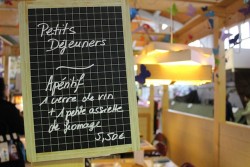 Petits
Déjeuners
Apéritif
1 verre de vin
+ 1 petite assiette
de fromage
5,50€